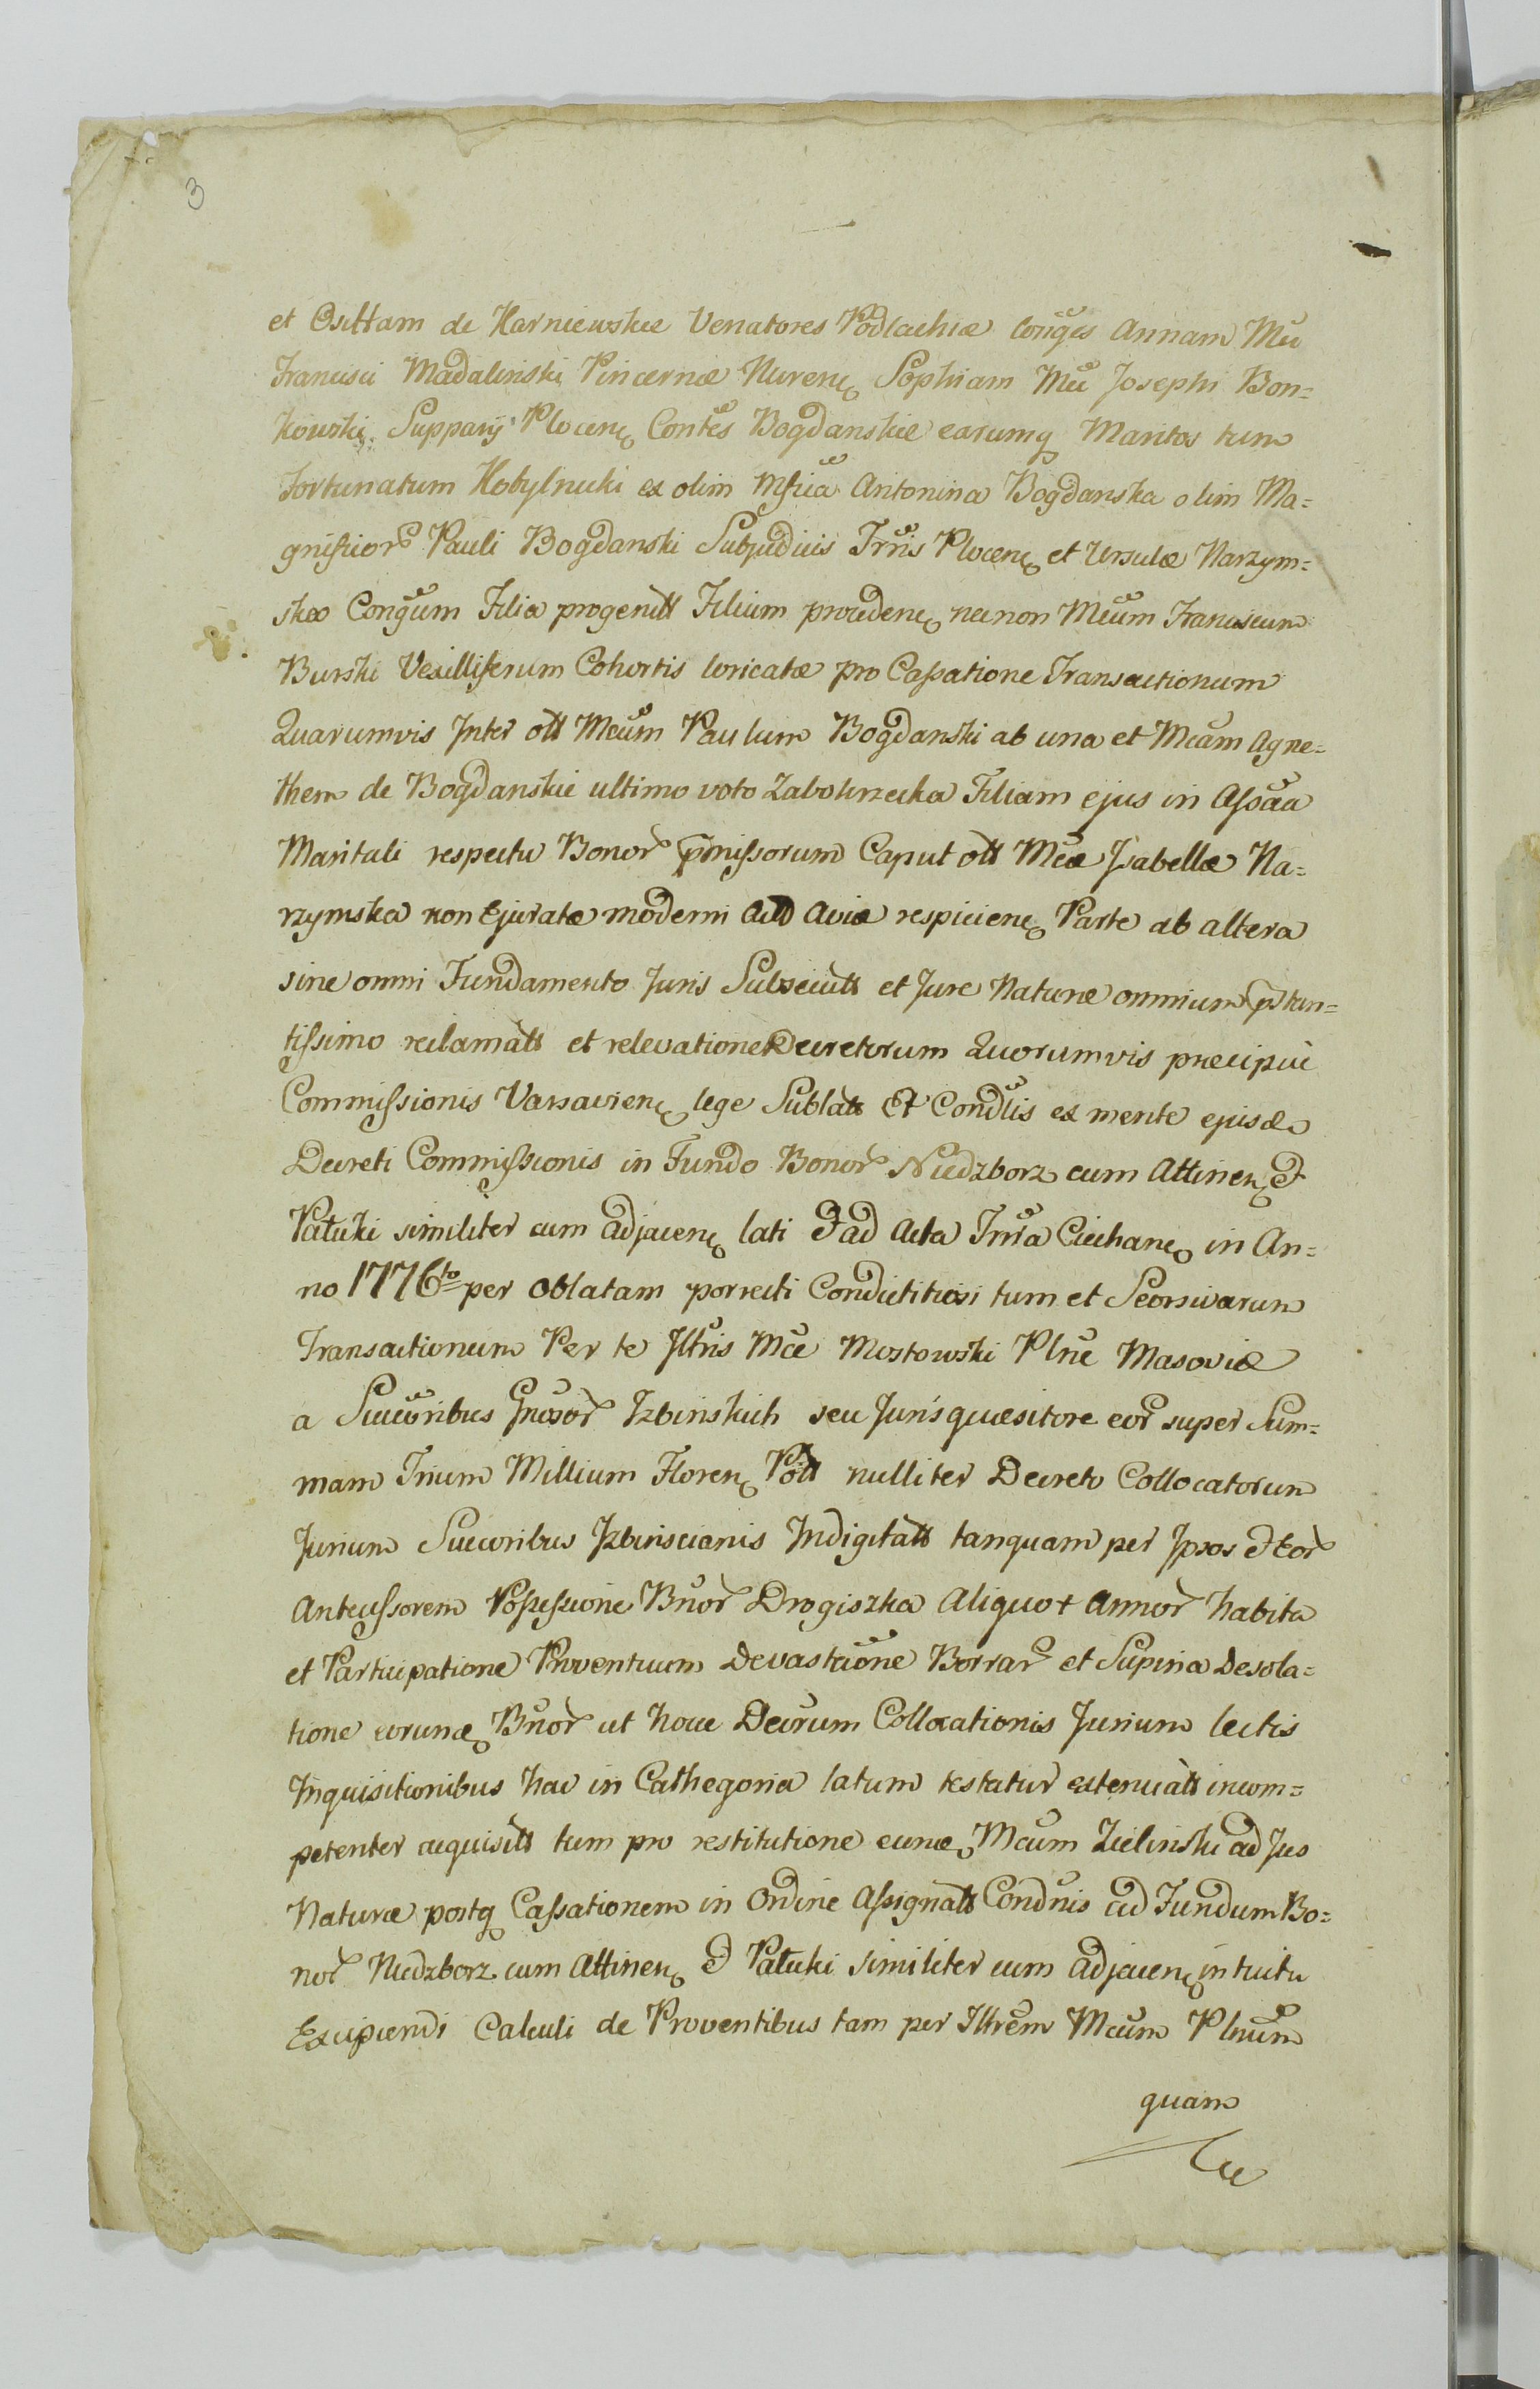 3
et Osittam de Karniewskie Venatores Podlachiæ Conges Annam Mci
Francisci Madalinski Pincernæ Nurens Sophiam Mci Josephi Bon=
kowski Supparij Plocens Contes Bogdanskie earumq Maritos tum
Fortunatum Kobylnicki ex olim Mfica Antonina Bogdanska olim Ma=
gnificor Pauli Bogdanski Subjudicis Trris Plocens et Ursulæ Narzym=
skæ Congum Filia progenitt Filium procedens necnon Mcum Franciscum
Burski Vexilliferum Cohortis loricatæ pro Cassatione Transactionum
Quarumvis Inter ott Mcum Paulum Bogdanski ab una et Mcam Agne=
them de Bogdanskie ultimo voto Zabokrzecka Filiam ejus in Assãa
Maritali respectu Bonor pmissorum Caput ott Mcæ Isabellæ Na=
rzymska non Ejuratæ moderni Act Aviæ respiciens Parte ab altera
sine omni Fundamento Juris Subsecutt et Jure Naturæ omnium pstan=
tissimo reclamatt et relevatione Decretorum Quorumvis præcipue
Commissionis Varsaviens lege Sublatt Et Condlis ex mente ejusd
Decreti Commissionis in Fundo Bonor Niedzborz cum Attinen et
Patuki similiter cum adjacens lati et ad Acta Trria Ciechans in An=
no 1776to per Oblatam porrecti Condictitiosi tum et Seorsivarum
Transactionum Per te Illris Mce Mostowski Plne Masoviæ
a Succoribus Gnosor Izbinskich seu Jurisquæsitore eor super Sum=
mam Trium Millium Floren Pott nulliter Decreto Collocatorum
Jurium Succoribus Izbinscianis Indigitatt tanquam per Ipsos et Eor
Antecessorem Possessione Bnor Drogiszka Aliquot Annor habita
et Participatione Proventuum Devastaõne Borrar et Supina Desola=
tione eorund Bnor ut hocce Decrum Collocationis Jurium lectis
Inquisitionibus hac in Cathegoria latum testatur extenuatt incom=
petenter acquisitt tum pro restitutione eund Mcum Zielinski ad Jus
Naturæ postq Cassationem in Ordine Assignatt Condnis ad Fundum Bo=
nor Niedzborz cum Attinen et Patuki similiter cum adjacens intuitu
Excipiendi Calculi de Proventibus tam per Illrem Mcum Plnum
quam